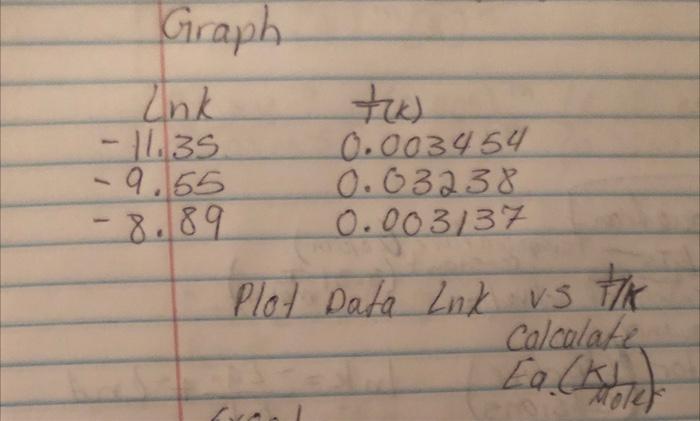 Graph
Lnk 1/T(K)
-11.35 0.003454
-9.55 0.03238
-8.89 0.003137
Plot Data Lnk vs 1/T/K
Calculate
Ea. (KJ/Mole)